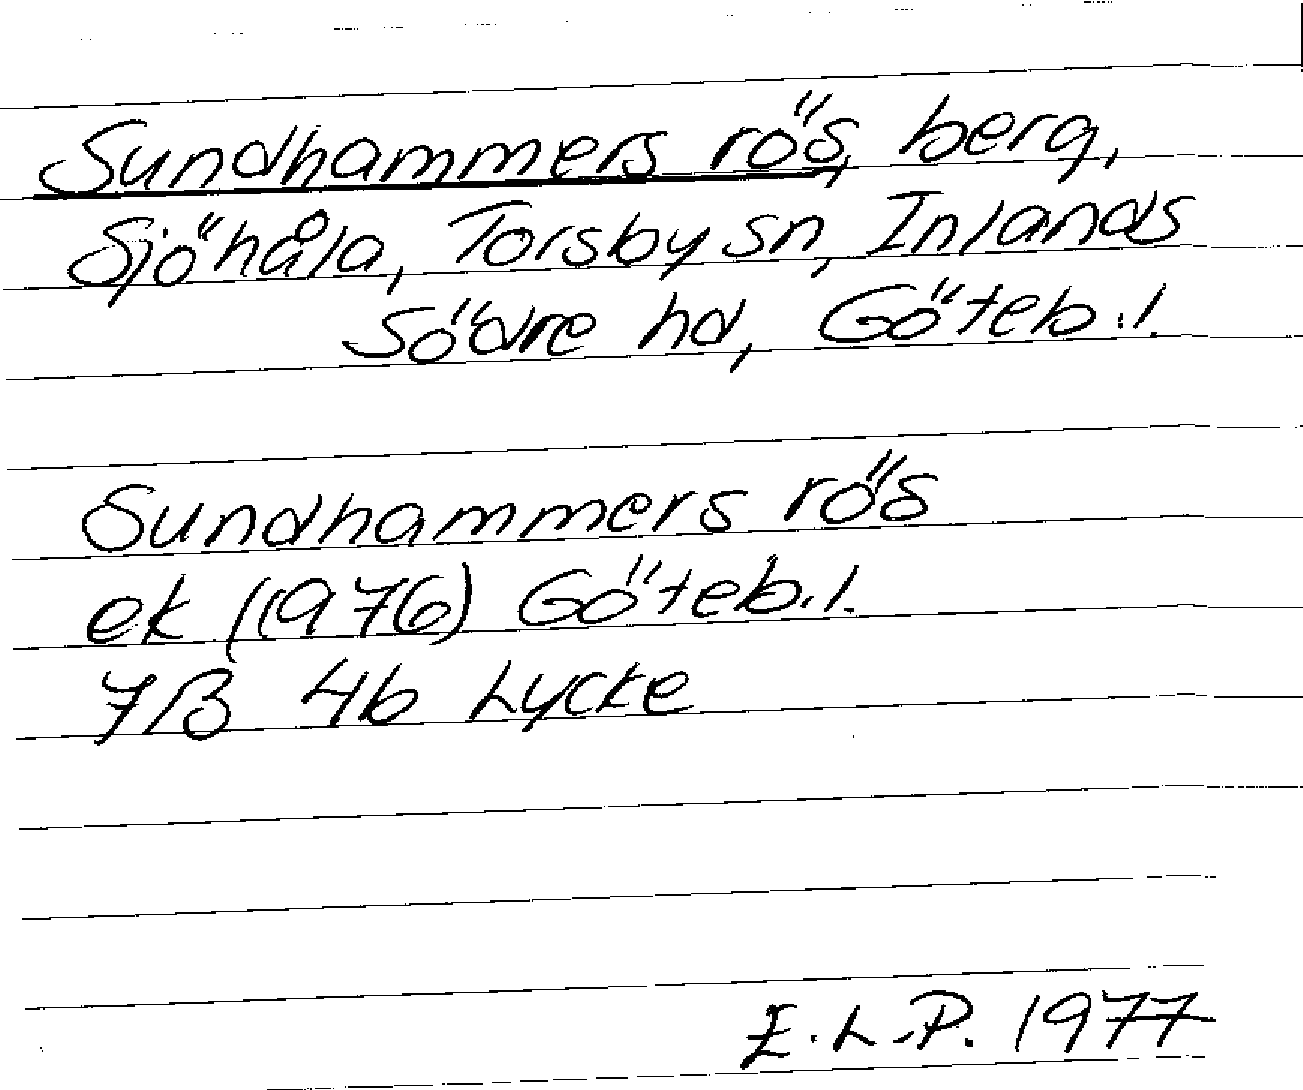 Sundhammers rös, berg,
Sjöhåla, Torsby sn, Inlands
Södre hd, Göteb.l.
Sundhammers rös
ek (1976) Göteb.l.
7B 4b Lycke
E.L.P. 1977